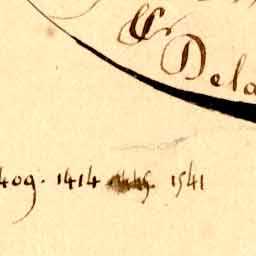 & Dela
409. 1414 1541